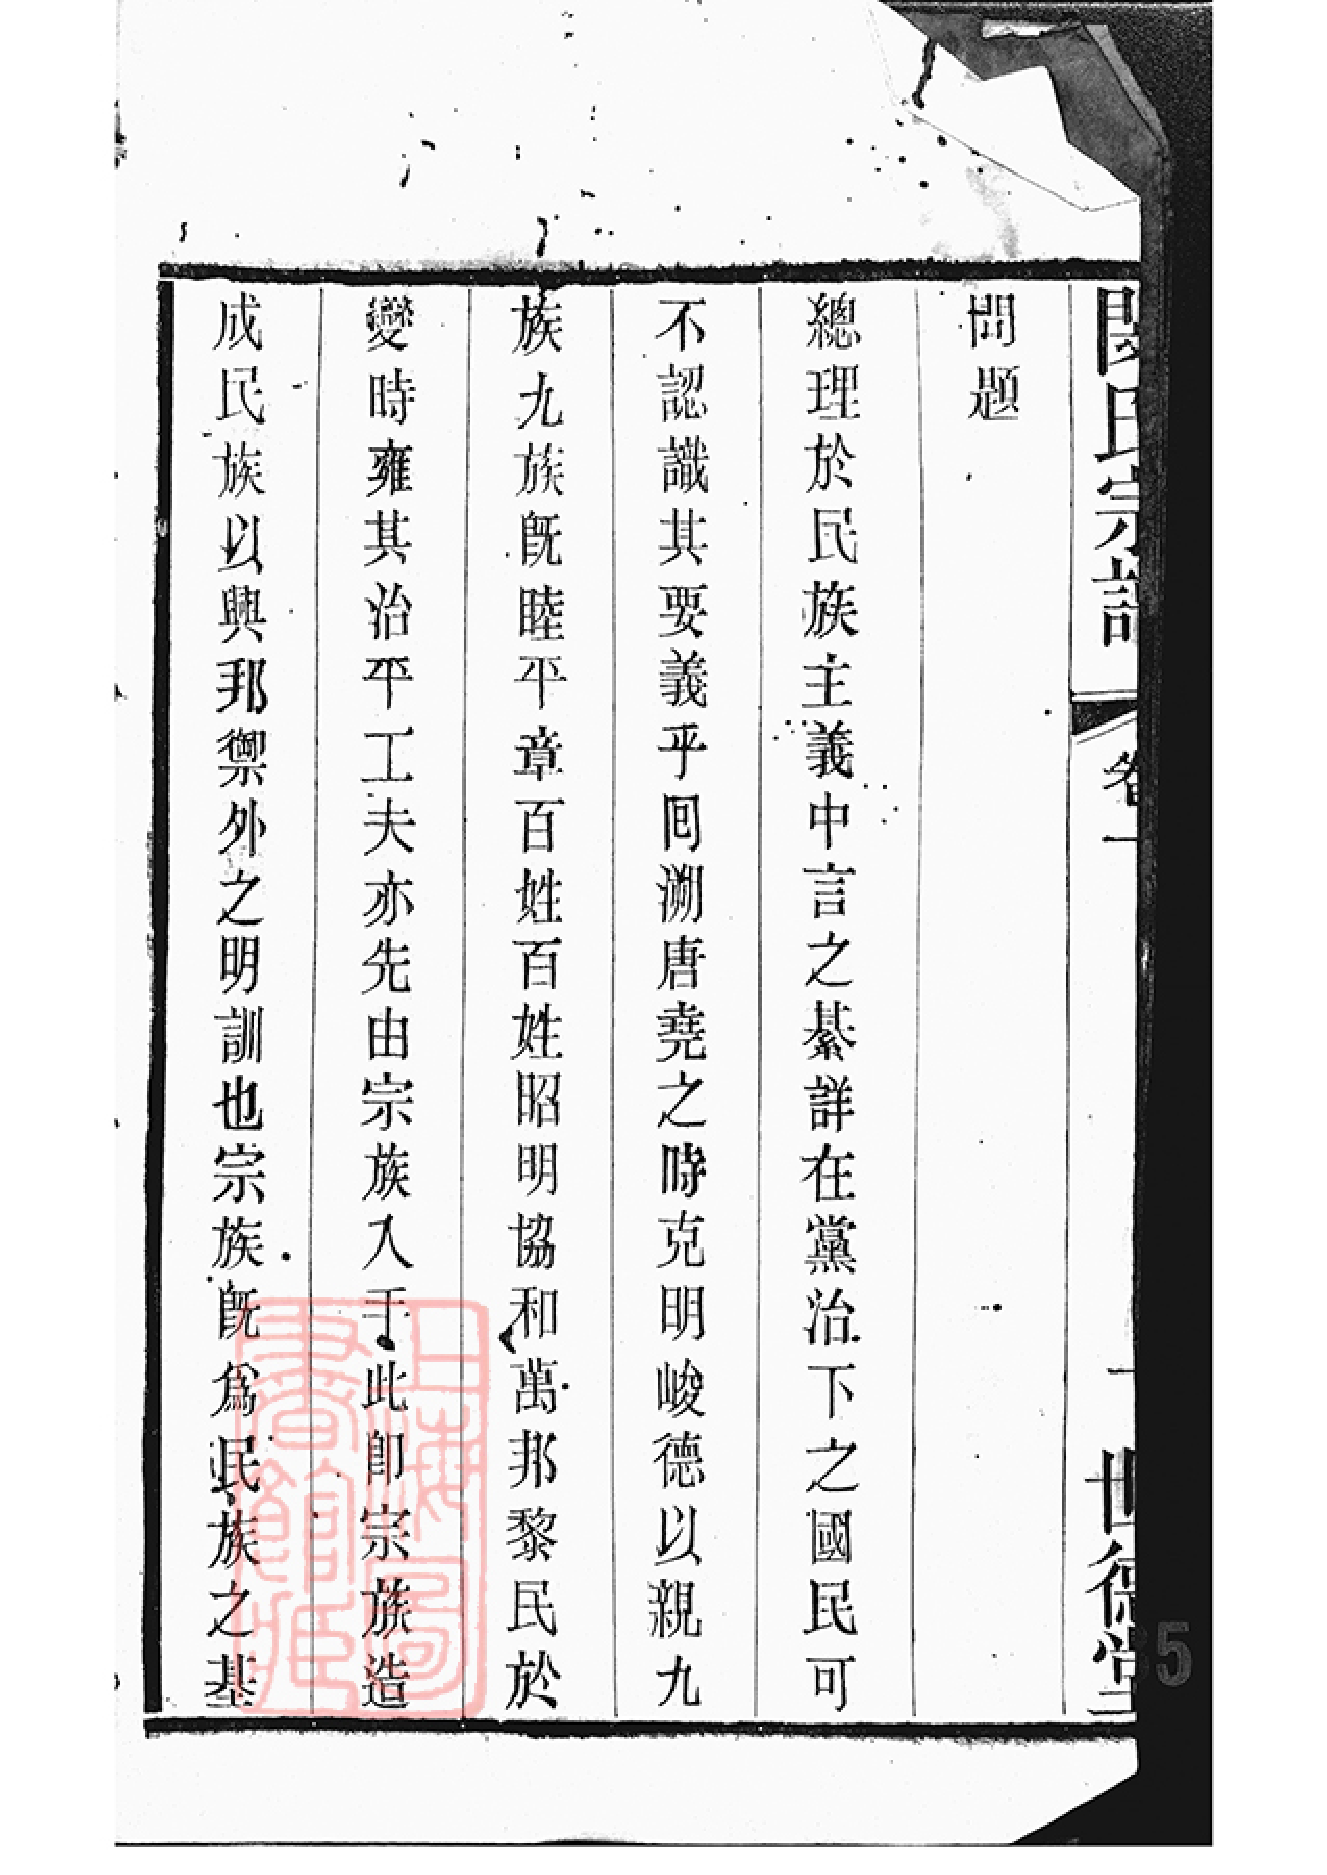 氏宗譜 卷一 一 世德堂
問題
總理於民族主義中言之綦詳在黨治下之國民可
不認識其要義乎囘溯唐堯之時克明峻德以親九
族九族旣睦平章百姓百姓昭明協和萬邦黎民於
變時雍其治平工夫亦先由宗族入手此卽宗族造
成民族以興邦禦外之明訓也宗族旣爲民族之基
上海圖書館藏
5